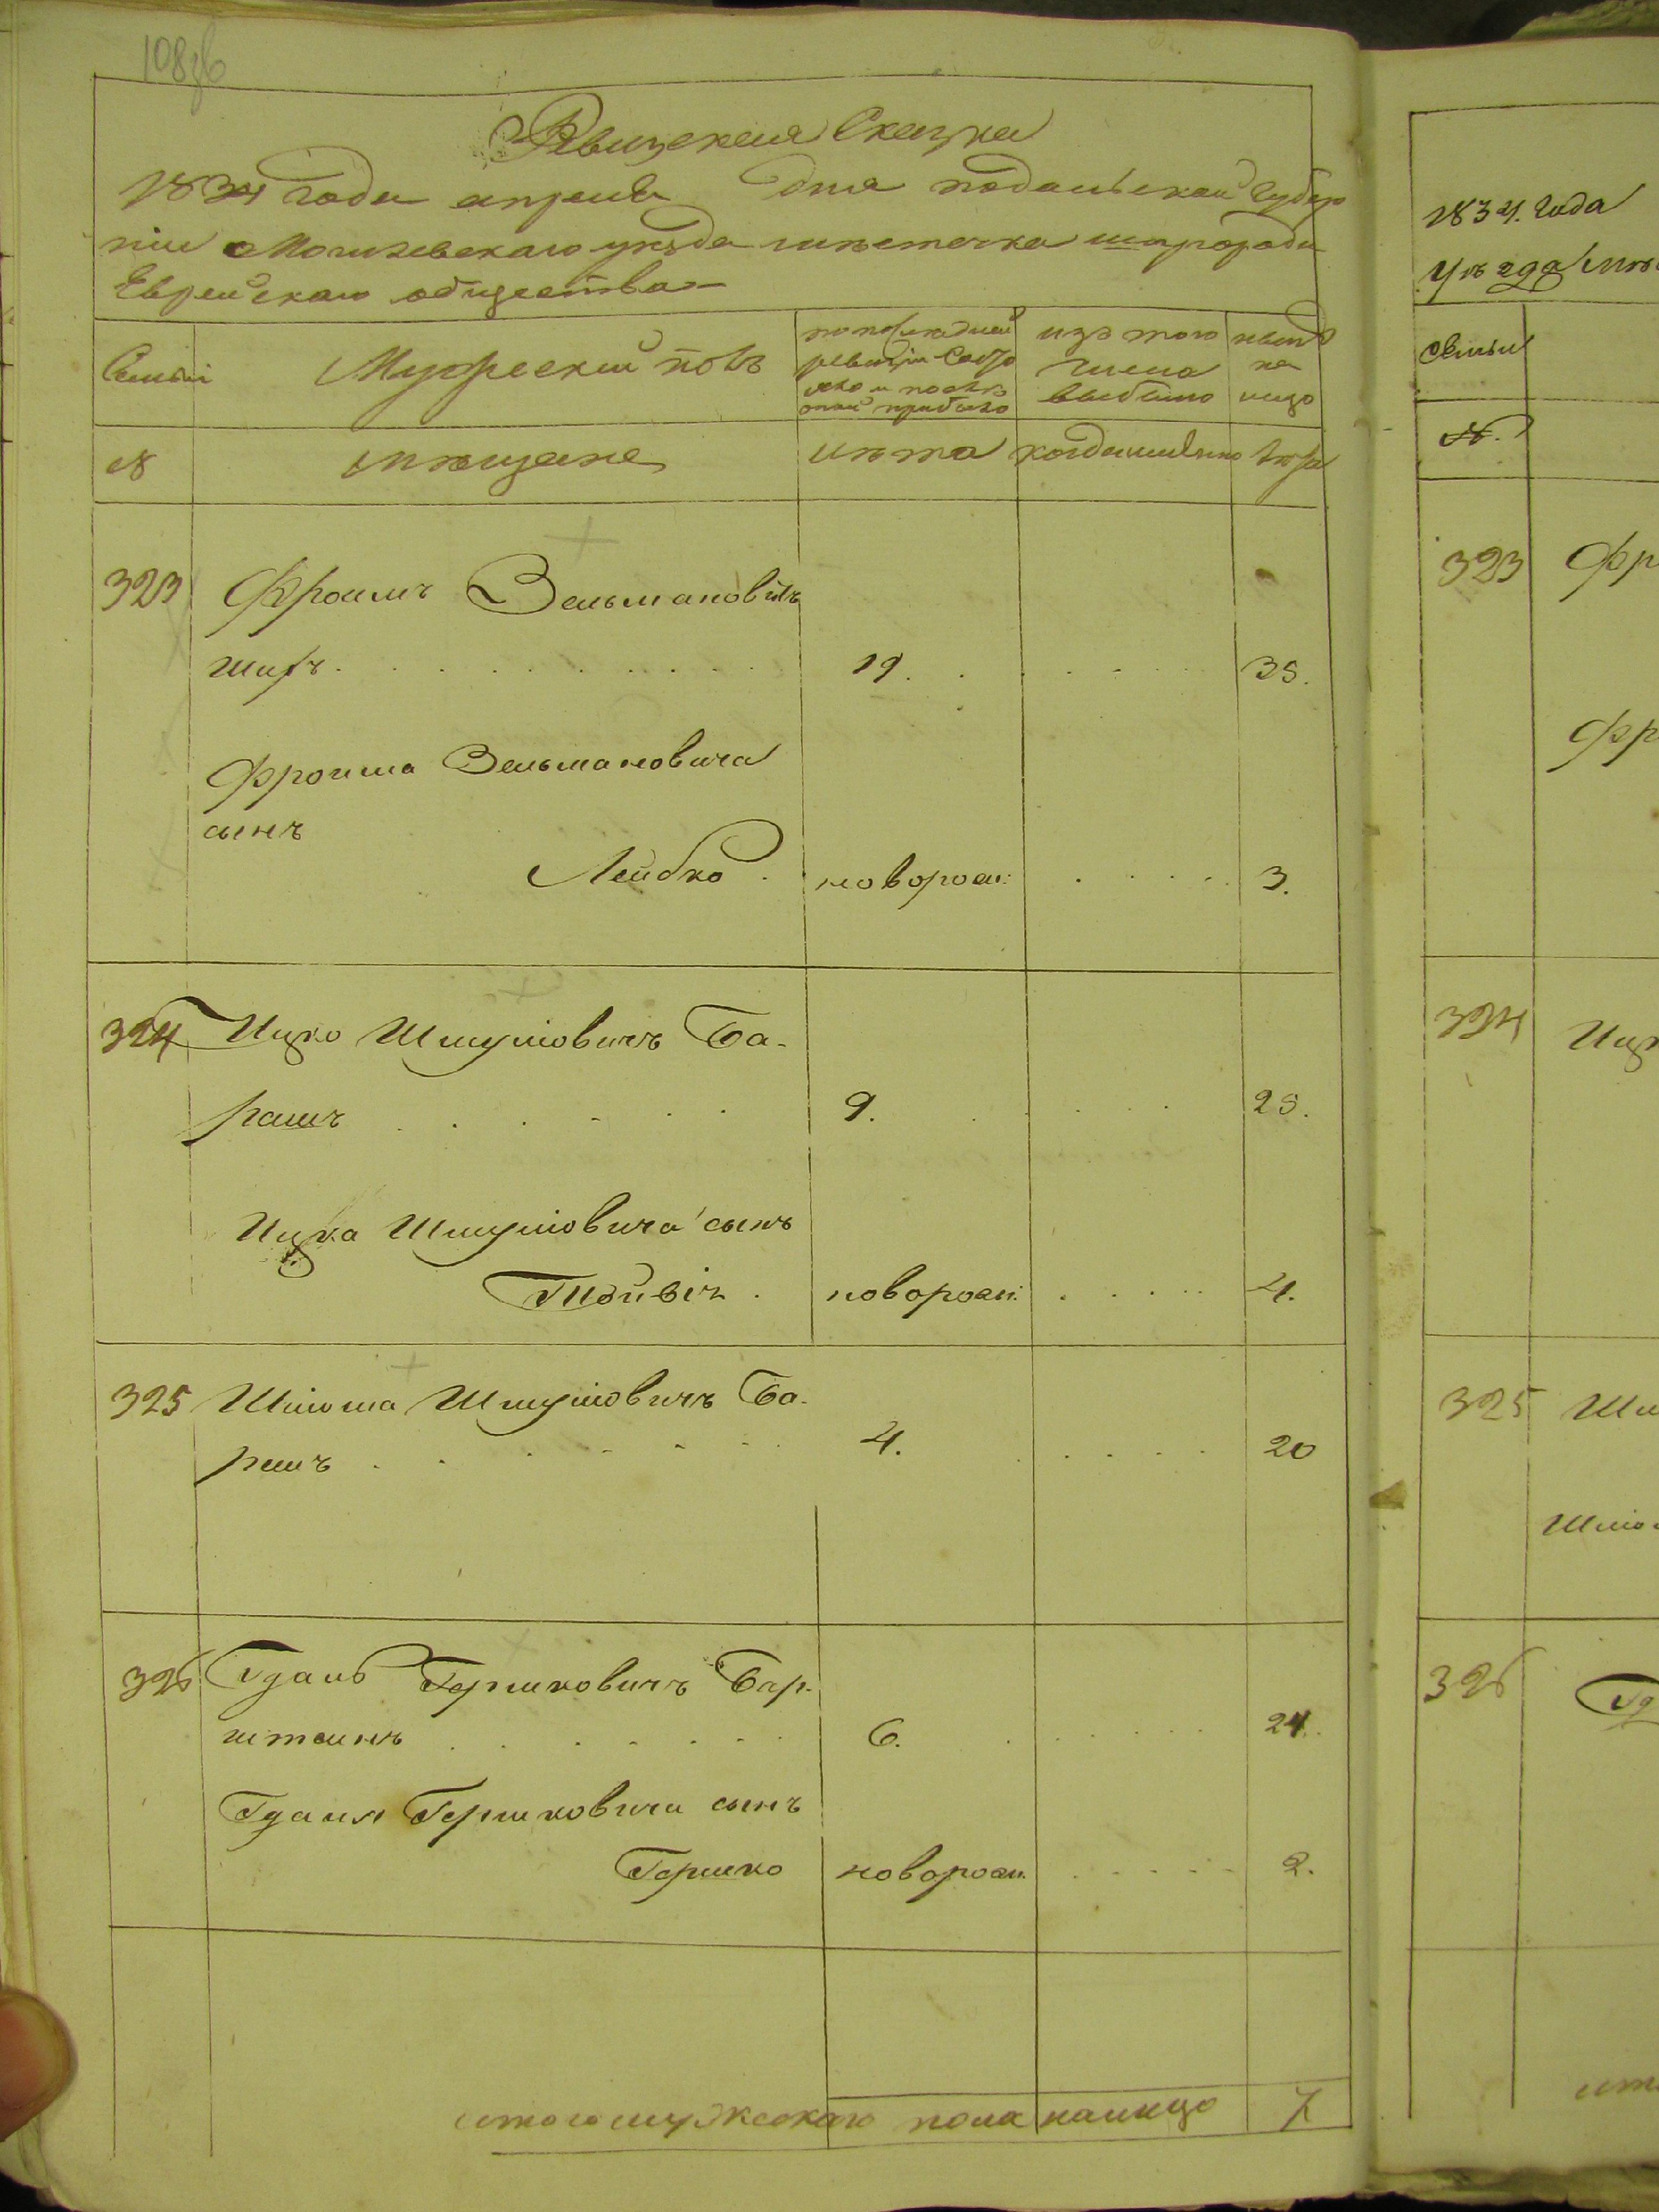 108зв
Ревизская Сказка
1834 года апреля дня подольской губер
нiи Могилевскаго уезда местечка шаргорода
Еврейскаго общества
Семьи
Мужеский полъ
по последней
ревизiи Состо
яло и после
оной прибыло
изъ того
числа
выбыло
ныне
на
лицо
№
мещане
лета
когда именно
лета
323
Фроимъ Зельмановичъ
ша
19.
35.
Фроима Зельмановича
сынъ
Лейбко.
новорож:
3.
324
Ицко Шмулiовичъ Ба-
рашъ
9.
25.
Ицка Шмулiовича сынъ
новорож:
4.
325
Шлiома Шмулiовичъ Ба-
рашъ
4.
20
326
Гдаль Гершковичъ Бар-
штейнъ
6.
24.
Гдаля Гершковича сынъ
Гершко
новорож.
2.
итого мужескаго пола налицо
7
1834. года
уезда ме
Семьи
№.
323
Фр
Фр
324
Ицк
325
Шл
Шлiо
326
Гд
ит